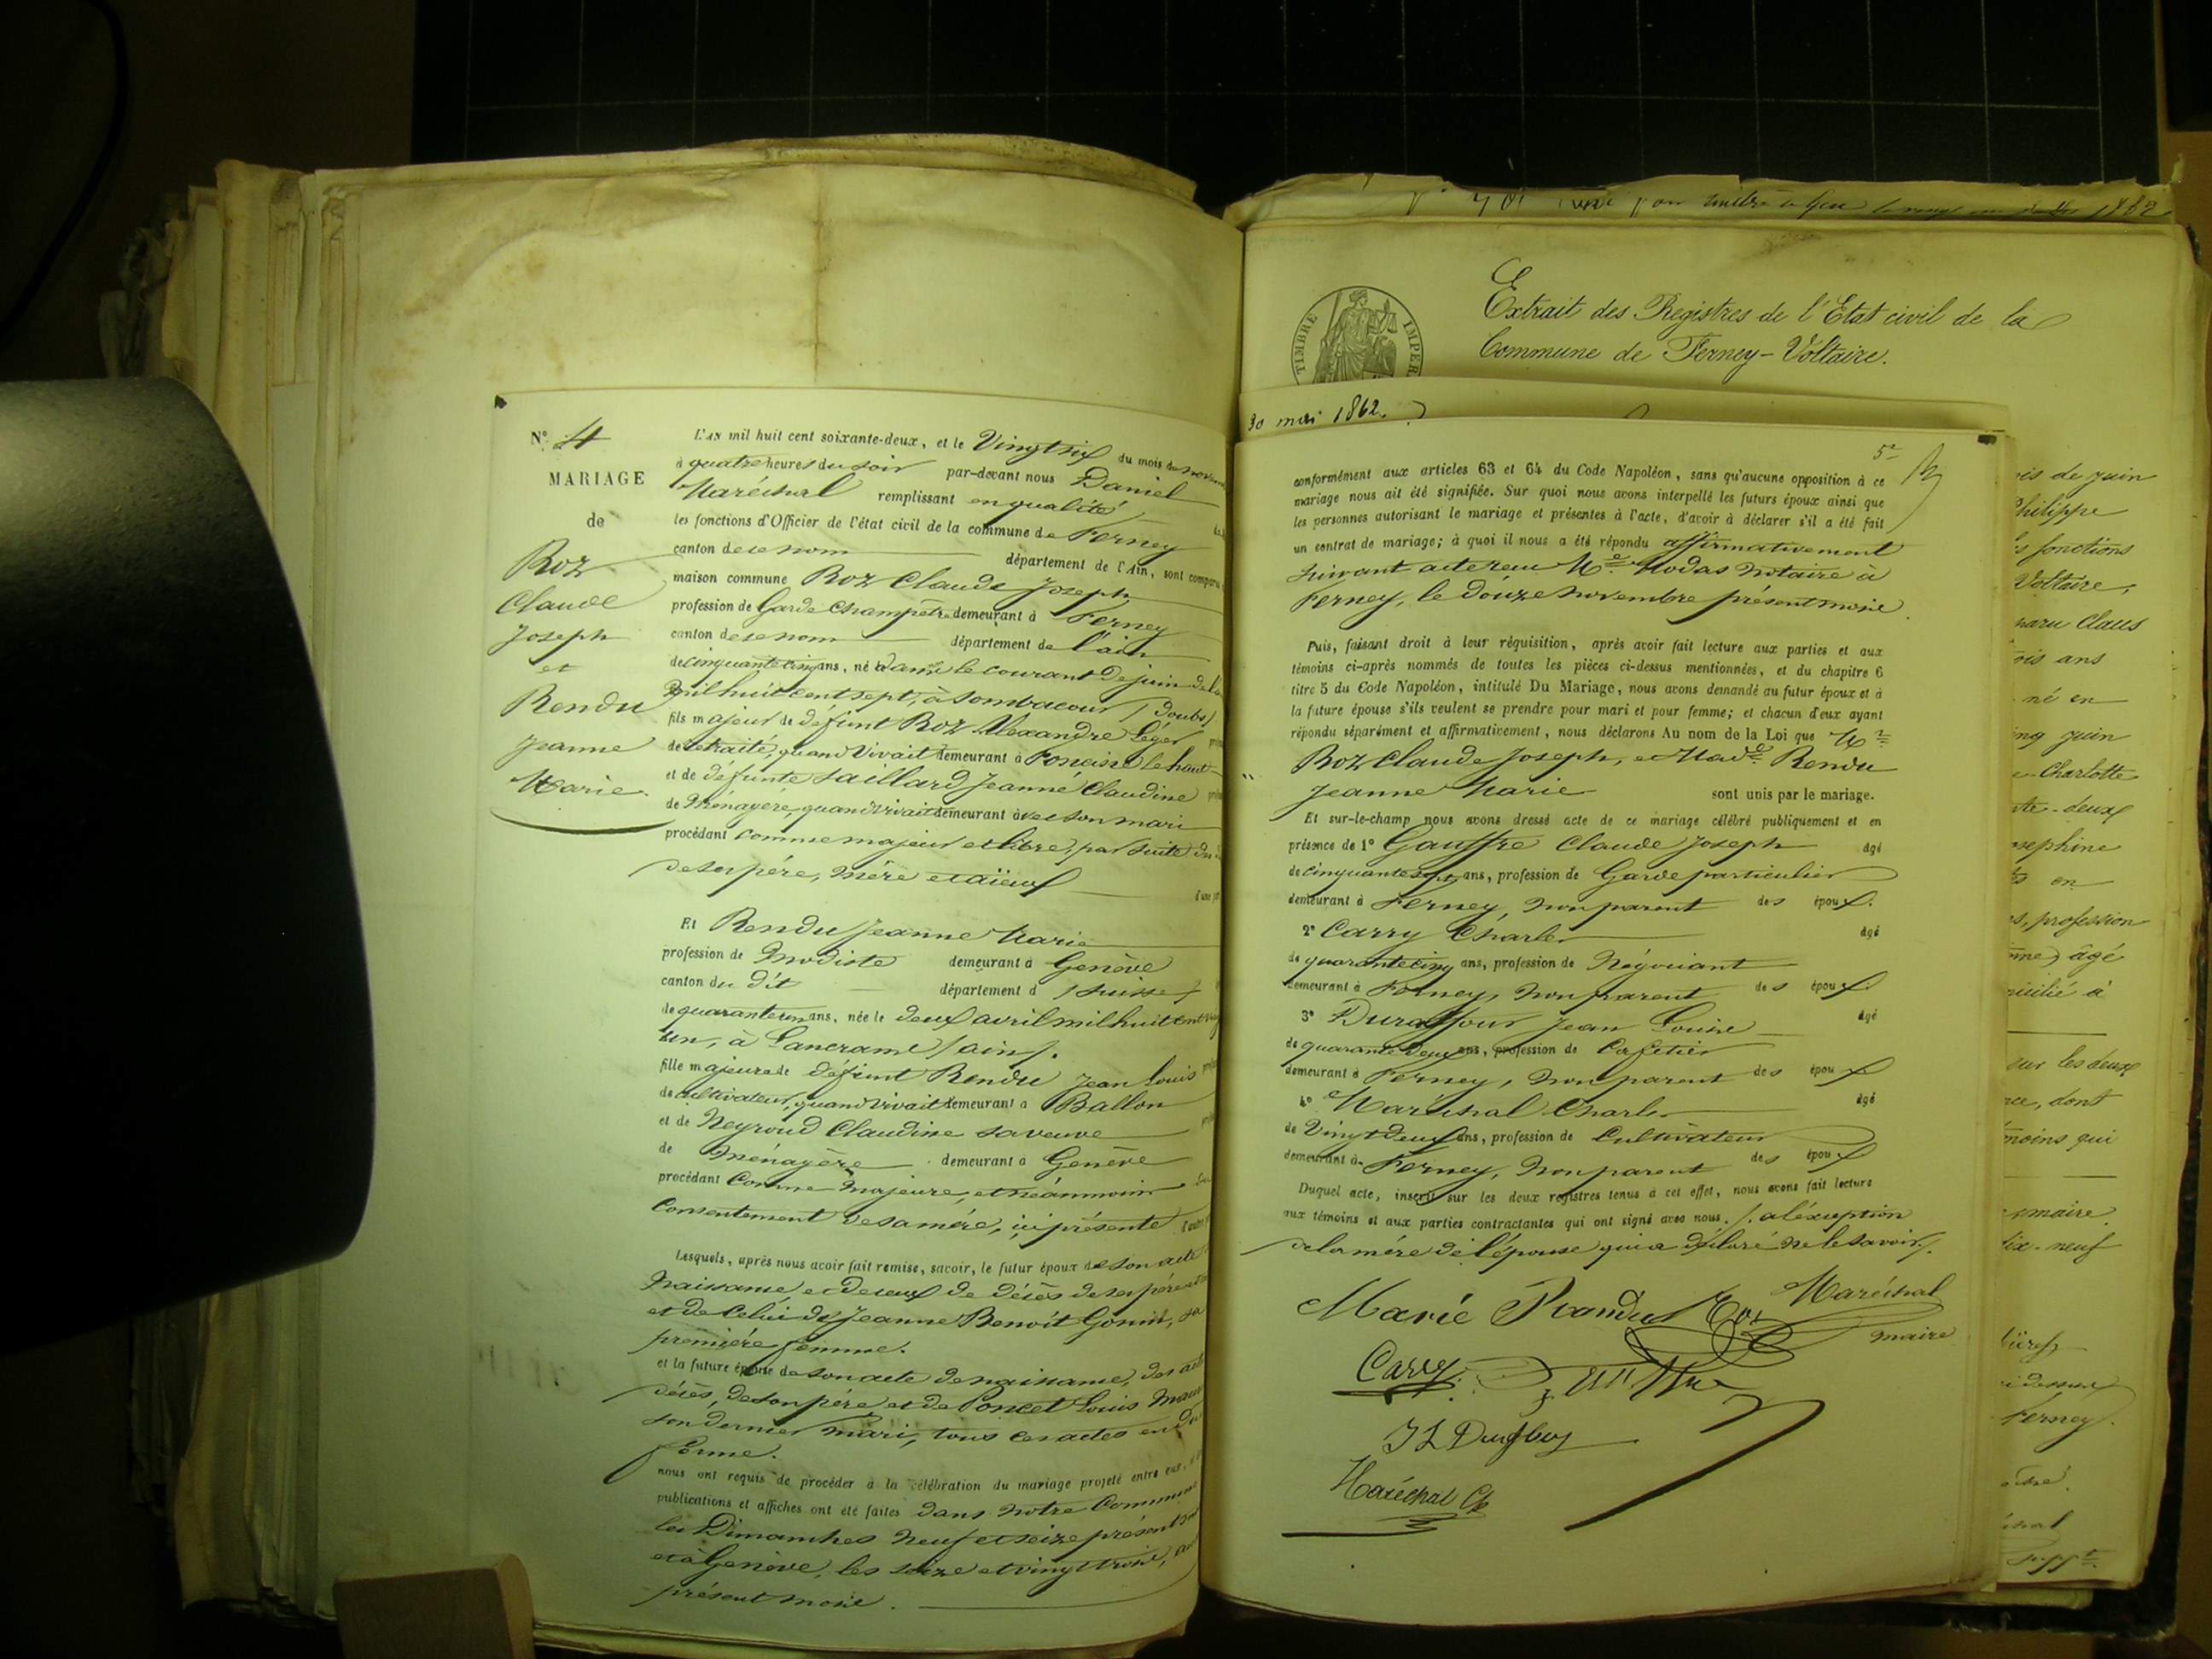 N° 4
MARIAGE
de
Roz
Claude
Joseph
et
Rendu
Jeanne
Marie
L'AN mil huit cent soixante-deux, et le Vingt six du mois de novem
à quatre heures du soir par-devant nous Daniel
Maréchal remplissant en qualité
les fonctions d'Officier de l'état civil de la commune de Ferney
canton de ce nom département de l'Ain, sont comparu
maison commune Roz Claude Joseph
profession de Garde Champêtre demeurant à Ferney
canton de ce nom département de l'ain
de cinquante cinq ans, né dans le courant de juin de l'an
mil huit cent sept, à Sombacour (Doubs)
fils majeur de défunt Roz Alexandre Léger
de retraité, quand vivait demeurant à le haut
et de défunte Saillard Jeanne Claudine
de Ménagère, quand vivait demeurant avec son mari
procédant comme majeur et libre, par suite du
de ses père, mère et aïeux
Et Rendu Jeanne Marie
profession de Modiste demeurant à Genève
canton du dit département d (Suisse)
de quarante un ans, née le deux avril mil huit cent vingt
un, à Lancrame (ain).
fille majeure de défunt Rendu Jean Louis
de cultivateur, quand vivait demeurant à Ballon
et de Neyroud Claudine sa veuve
de Ménagère demeurant à Genève
procédant Comme majeure, et néanmoins du
Consentement de sa mère, ici présente
Lesquels, après nous avoir fait remise, savoir, le futur époux de son acte
naissance, et de ceux de décès de ses père et
et de celui de Jeanne Benoit Gonin, sa
première femme.
et la future épouse de son acte de naissance, des act
décès, de son père, et de Poncet Louis
son dernier mari, tous ces actes en
forme.
nous ont requis de procéder à la célébration du mariage projeté entre eux,
publications et affiches ont été faites dans notre Commune
les Dimanches neuf et seize présent
et à Genève, les seize et vingt trois,
présent mois.
N° 401 1862
Extrait des Registres de l'Etat civil de la
Commune de Ferney-Voltaire.
TIMBRE IMPER
30 mai 1862.
5
conformément aux articles 63 et 64 du Code Napoléon, sans qu'aucune opposition à ce
mariage nous ait été signifiée. Sur quoi nous avons interpellé les futurs époux ainsi que
les personnes autorisant le mariage et présentes à l'acte, d'avoir à déclarer s'il a été fait
un contrat de mariage; à quoi il nous a été répondu affirmativement
suivant acte reçu Me Modas Notaire à
Ferney, le douze novembre présent mois
Puis, faisant droit à leur réquisition, après avoir fait lecture aux parties et aux
témoins ci-après nommés de toutes les pièces ci-dessus mentionnées, et du chapitre 6
titre 5 du Code Napoléon, intitulé Du Mariage, nous avons demandé au futur époux et à
la future épouse s'ils veulent se prendre pour mari et pour femme; et chacun d'eux ayant
répondu séparément et affirmativement, nous déclarons Au nom de la Loi que Mr
Roz Claude Joseph, et Made Rendu
Jeanne Marie sont unis par le mariage.
Et sur-le-champ nous avons dressé acte de ce mariage célébré publiquement et en
présence de 1° Gauffre Claude Joseph âgé
de cinquante sept ans, profession de Garde particulier
demeurant à Ferney, non parent des époux.
2° Carry Charles âgé
de quarante cinq ans, profession de Négociant
demeurant à Ferney, non parent des époux.
3° Duraffour Jean Louis âgé
de quarante deux ans, profession de Cafetier
demeurant à Ferney, non parent des époux
4° Maréchal Charles âgé
de Vingt deux ans, profession de Cultivateur
demeurant à Ferney, non parent des époux
Duquel acte, inscrit sur les deux registres tenus à cet effet, nous avons fait lecture
aux témoins et aux parties contractantes qui ont signé avec nous. /. a l'exception
de la mère de l'épouse qui a déclaré ne le savoir /.
Marie Randu Roz Maréchal
maire
Carry
Maréchal Ch
is de juin
Philippe
s fonctions
Voltaire,
paru Claus
ois ans
né en
inq juin
Charlotte
te-deux
sephine
en
s, profession
âgé
icilié à
sur les deux
ce, dont
moins qui
maire
dix-neuf
Ferney.